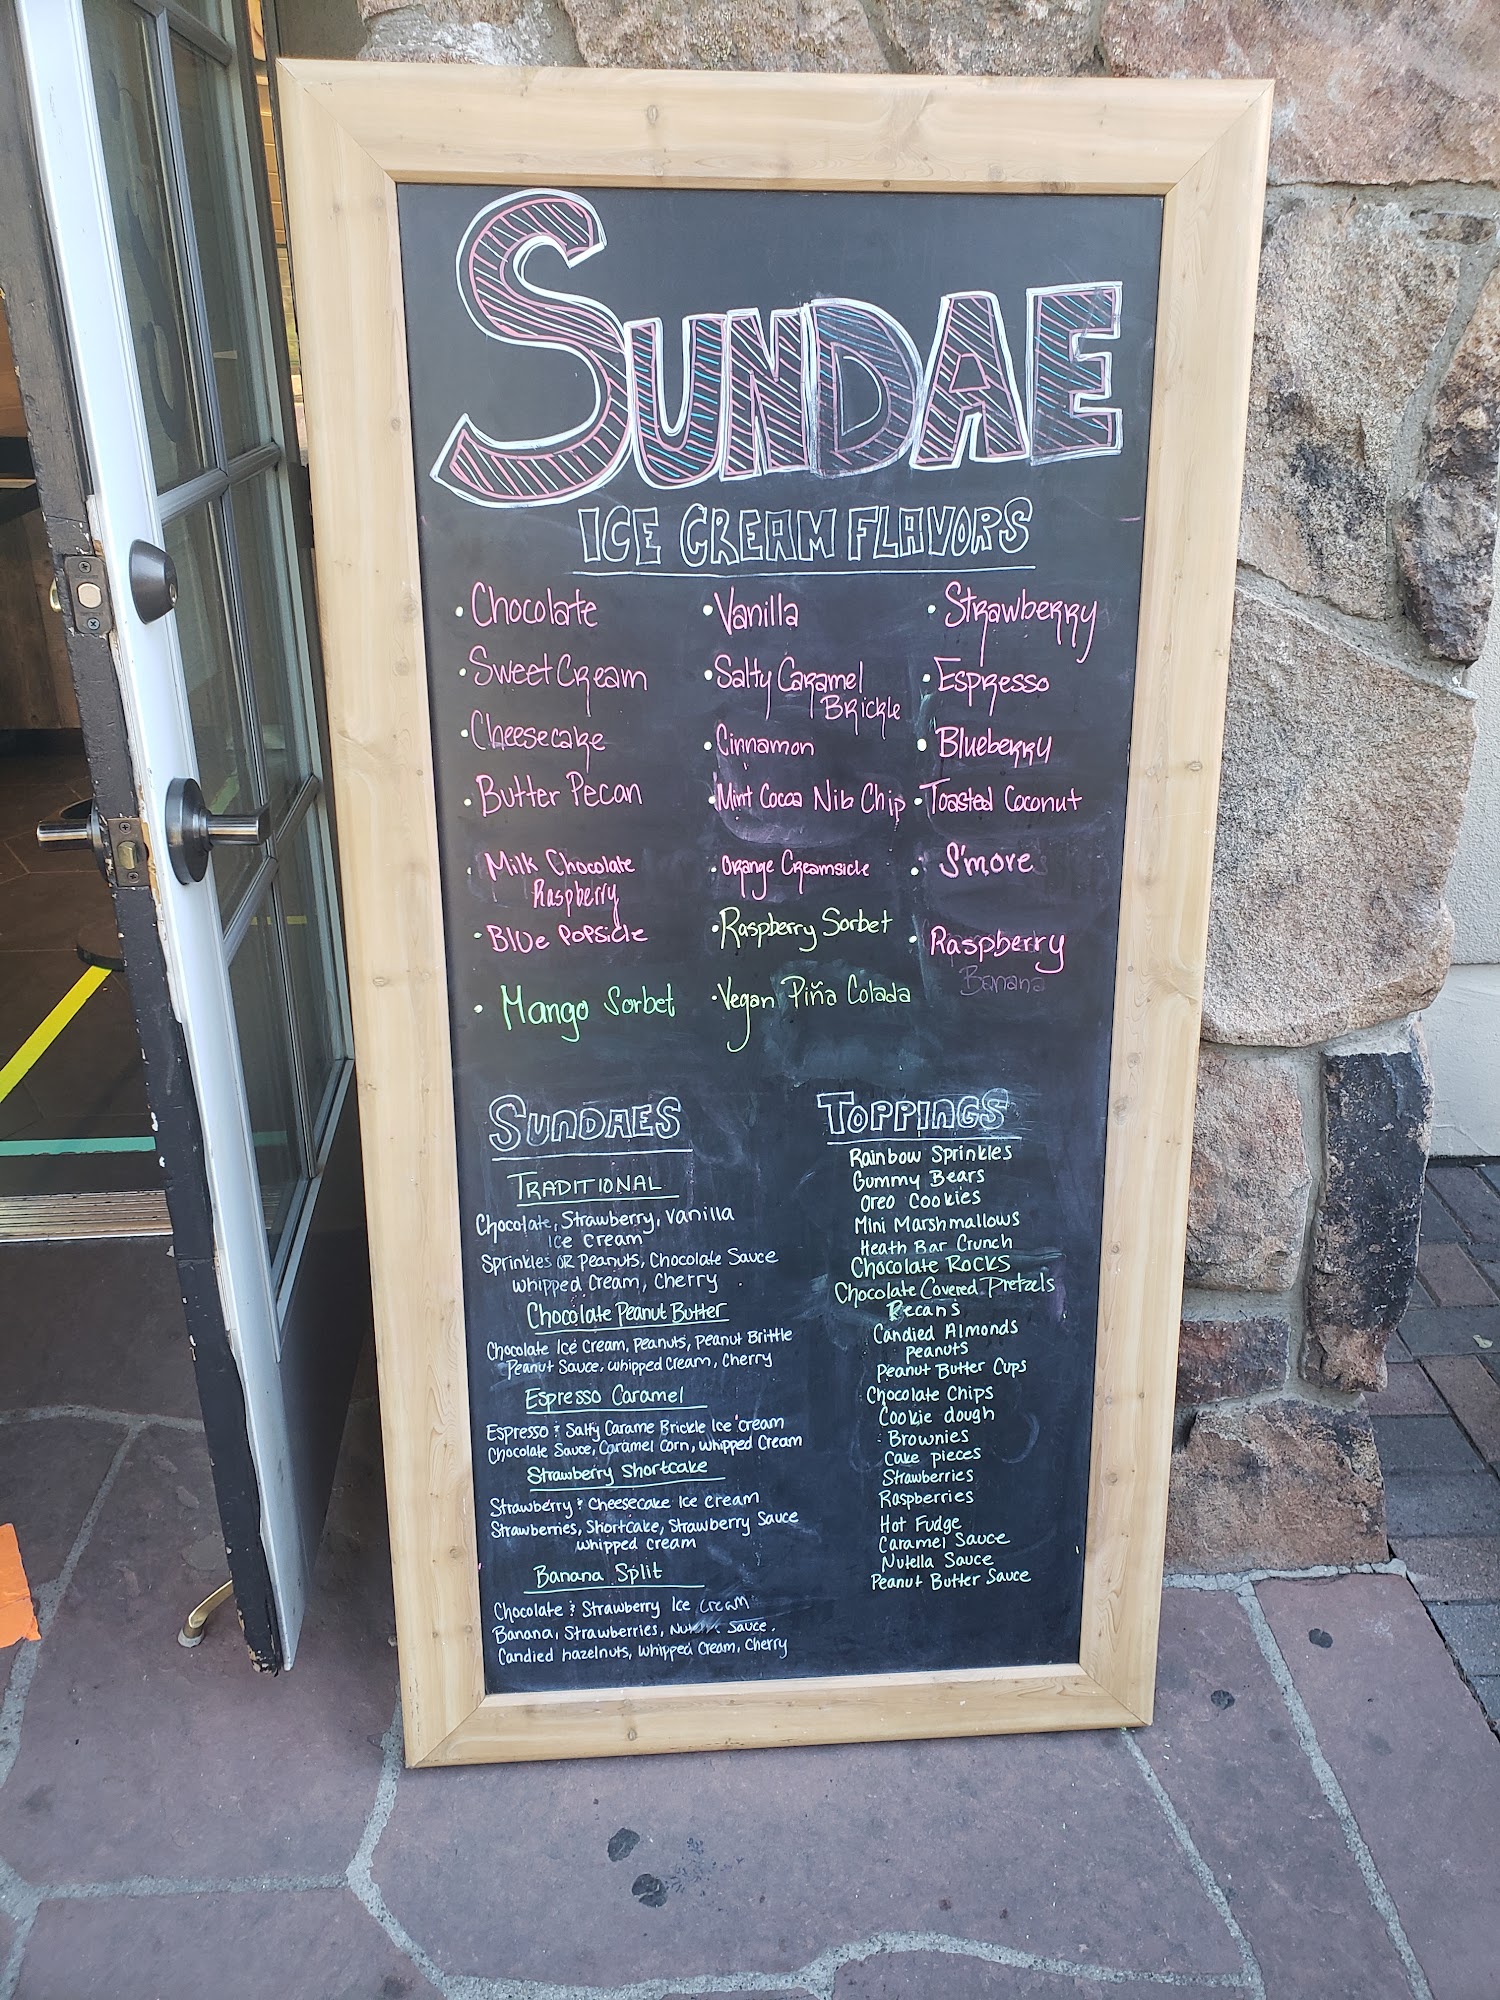 SUNDAE
ICE CREAM FLAVORS
• Chocolate • Vanilla • Strawberry
• Sweet Cream • Salty Caramel • Espresso
Brickle
• Cheesecake • Cinnamon • Blueberry
• Butter Pecan • Mint Cocoa Nib Chip • Toasted Coconut
• Milk Chocolate • Orange Creamsicle • S'more
Raspberry
• Blue Popsicle • Raspberry Sorbet • Raspberry
Banana
• Mango Sorbet • Vegan Piña Colada
SUNDAES
TRADITIONAL
Chocolate, Strawberry, Vanilla
ice cream
Sprinkles OR Peanuts, Chocolate Sauce
Whipped Cream, Cherry
Chocolate Peanut Butter
Chocolate Ice Cream, Peanuts, Peanut Brittle
Peanut Sauce, Whipped Cream, Cherry
Espresso Caramel
Espresso & Salty Carame Brickle Ice cream
Chocolate Sauce, Caramel Corn, Whipped Cream
Strawberry Shortcake
Strawberry & Cheesecake Ice cream
Strawberries, Shortcake, Strawberry Sauce
whipped cream
Banana Split
Chocolate & Strawberry Ice Cream
Banana, Strawberries, Sauce,
Candied hazelnuts, Whipped Cream, Cherry
TOPPINGS
Rainbow Sprinkles
Gummy Bears
Oreo Cookies
Mini Marshmallows
Heath Bar Crunch
Chocolate Rocks
Chocolate Covered Pretzels
Pecans
Candied Almonds
peanuts
Peanut Butter Cups
Chocolate Chips
Cookie dough
Brownies
Cake pieces
Strawberries
Raspberries
Hot Fudge
Caramel Sauce
Nutella Sauce
Peanut Butter Sauce